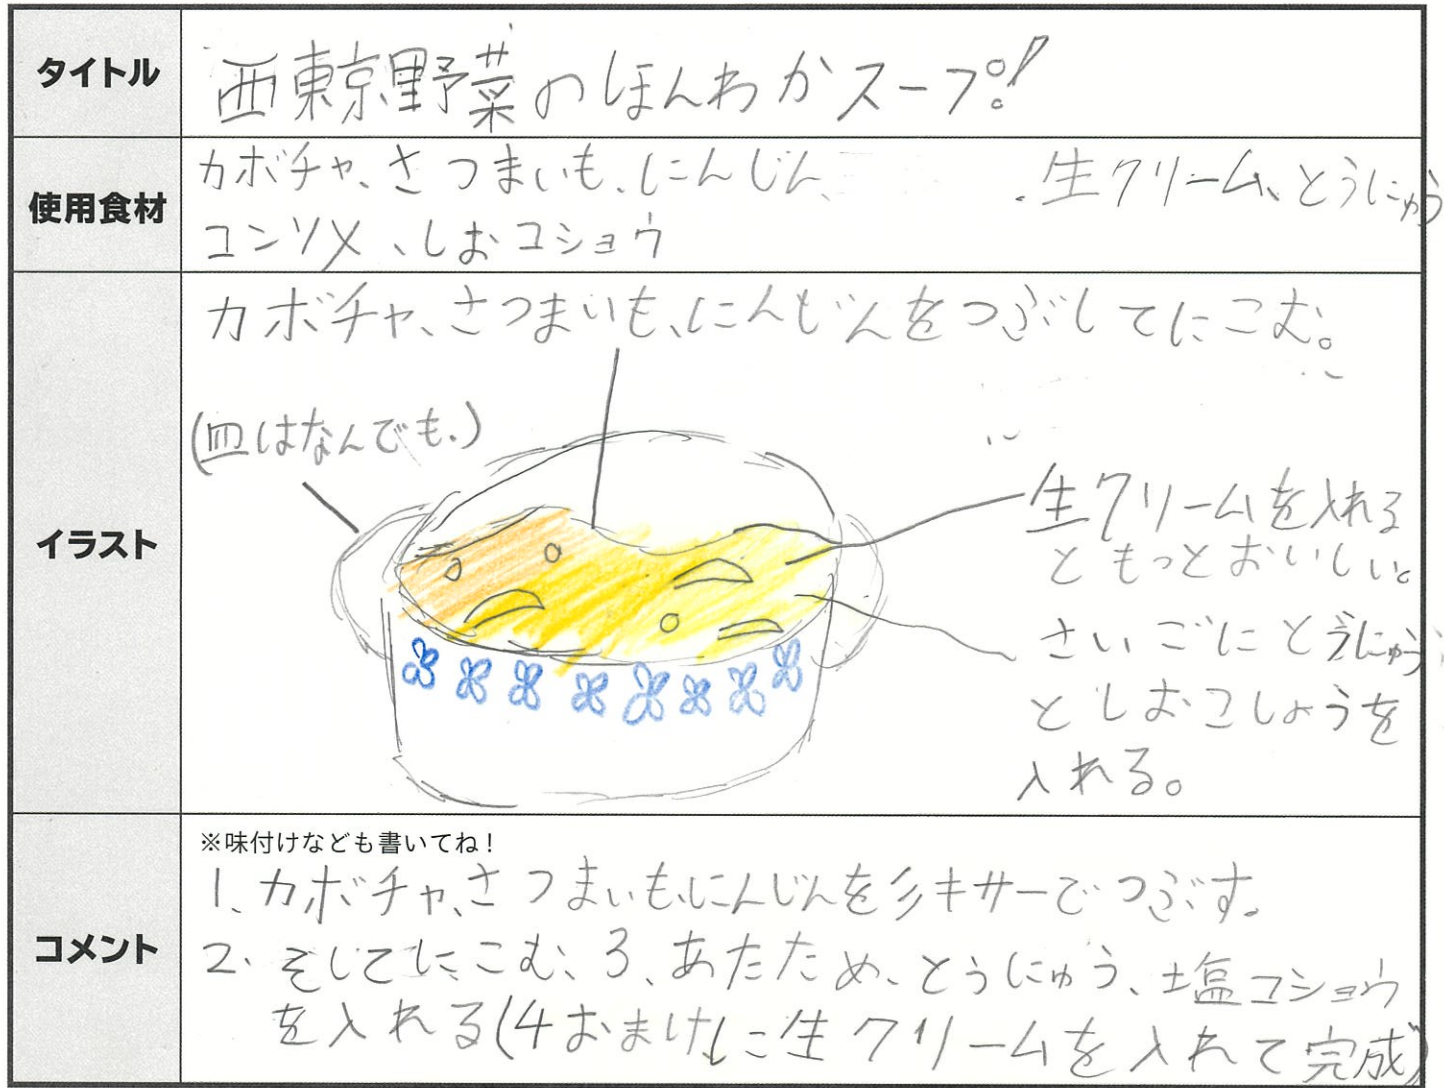 タイトル
西東京野菜のほんわかスープ!
使用食材
カボチャ、さつまいも、にんじん、生クリーム、とうにゅう
コンソメ、しおコショウ
イラスト
カボチャ、さつまいも、にんじんをつぶしてにこむ。
(皿はなんでも。)
生クリームを入れる
ともっとおいしい。
さいごにとうにゅう
としおこしょうを
入れる。
コメント
※味付けなども書いてね!
1、カボチャ、さつまいも、にんじんをミキサーでつぶす。
2、そしてにこむ、3、あたため、とうにゅう、塩コショウ
を入れる(4おまけに生クリームを入れて完成)